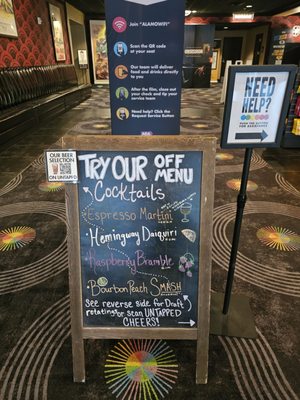 Join "ALAMOWIFI"
Scan the QR code
at your seat
Our team will
deliver food and
drinks directly
to you
After the film,
close your check or tip your
service team
Need help? Click the
Request Service button
NEED
HELP?
OUR BEER
SELECTION
ON UNTAPPD
TRY OUR OFF MENU
Cocktails
Espresso Martini
Hemingway Daiquiri
Raspberry Bramble
Bourbon Peach SMASH
SEE reverse side for Draft
rotating or scan UNTAPPED
CHEERS!